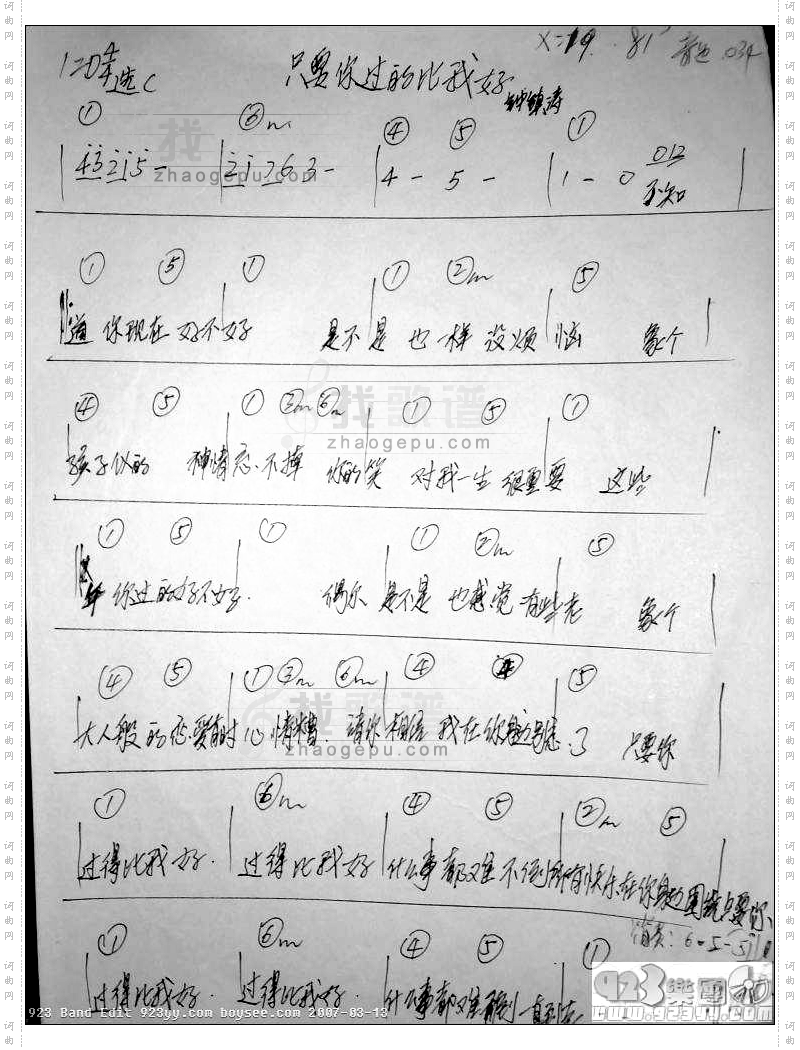 X=119 81' 音色 034
1=D 4/4 选C 只要你过的比我好 钟镇涛
① ⑥m ④ ⑤ ①
4 3 2 1 5 - | 2 1 7 6 3 - | 4 - 5 - | 1 - 0 012 |
不知
① ⑤ ① ① ②m ⑤
道 你现在 好不好 是不是 也一样 没烦恼 象个
④ ⑤ ① ③m ⑥m ① ⑤ ①
孩子似的 神情忘不掉 你的笑 对我一生 很重要 这些
① ⑤ ① ① ②m ⑤
年 你过的好不好 偶尔 是不是 也感觉 有些老 象个
④ ⑤ ① ③m ⑥m ④ ④ ⑤
大人般 的恋爱有时心情糟 请你相信 我在你身边别忘了 只要你
① ⑥m ④ ⑤ ②m ⑤
过得比我好 过得比我好 什么事都难不倒所有快乐在你身边围绕只要你
① ⑥m ④ ⑤ ①
过得比我好 过得比我好 什么事都难不倒 一直到老
找歌谱
zhaogepu.com
找歌谱
zhaogepu.com
找歌谱
zhaogepu.com
923 Band Edit 923yy.com boysee.com 2007-03-13
923樂團
www.923yy.com
词曲网